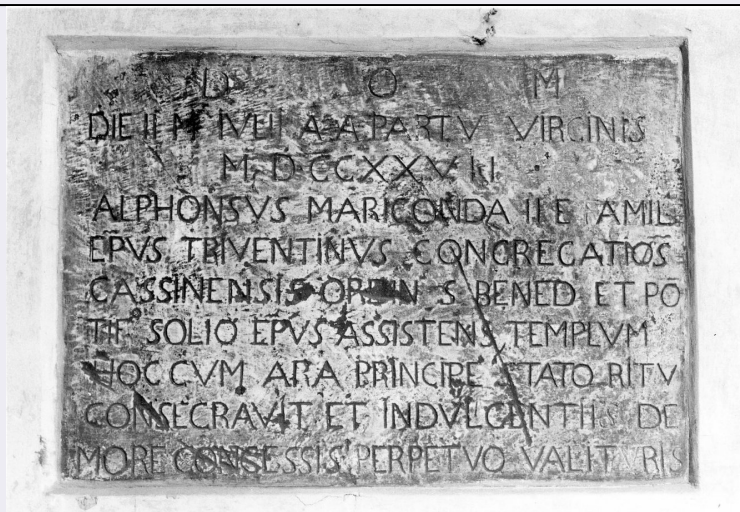 D O M
DIE II M IVLII A A PARTV VIRGINIS
M D CCXXVII
ALPHONSVS MARICONDA
EPVS TRIVENTINVS CONGREGATIOS
CASSINENSIS ORDIN S BENED ET PO
TIF SOLIO EPVS ASSISTENS TEMPLVM
HOC CVM ARA PRINCIPE STATO RITV
CONSECRAVIT ET INDVLGENTIIS DE
MORE CONSESSIS PERPETVO VALITVRIS